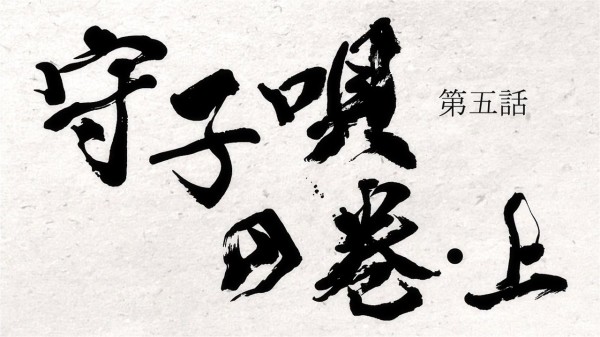 守子唄
の巻・上
第五話